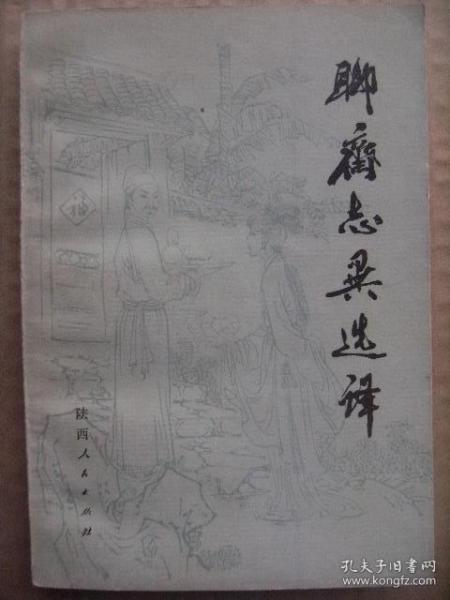 聊齋志異选译
福
陕西人民出版社
孔夫子旧书网
www.kongfz.com